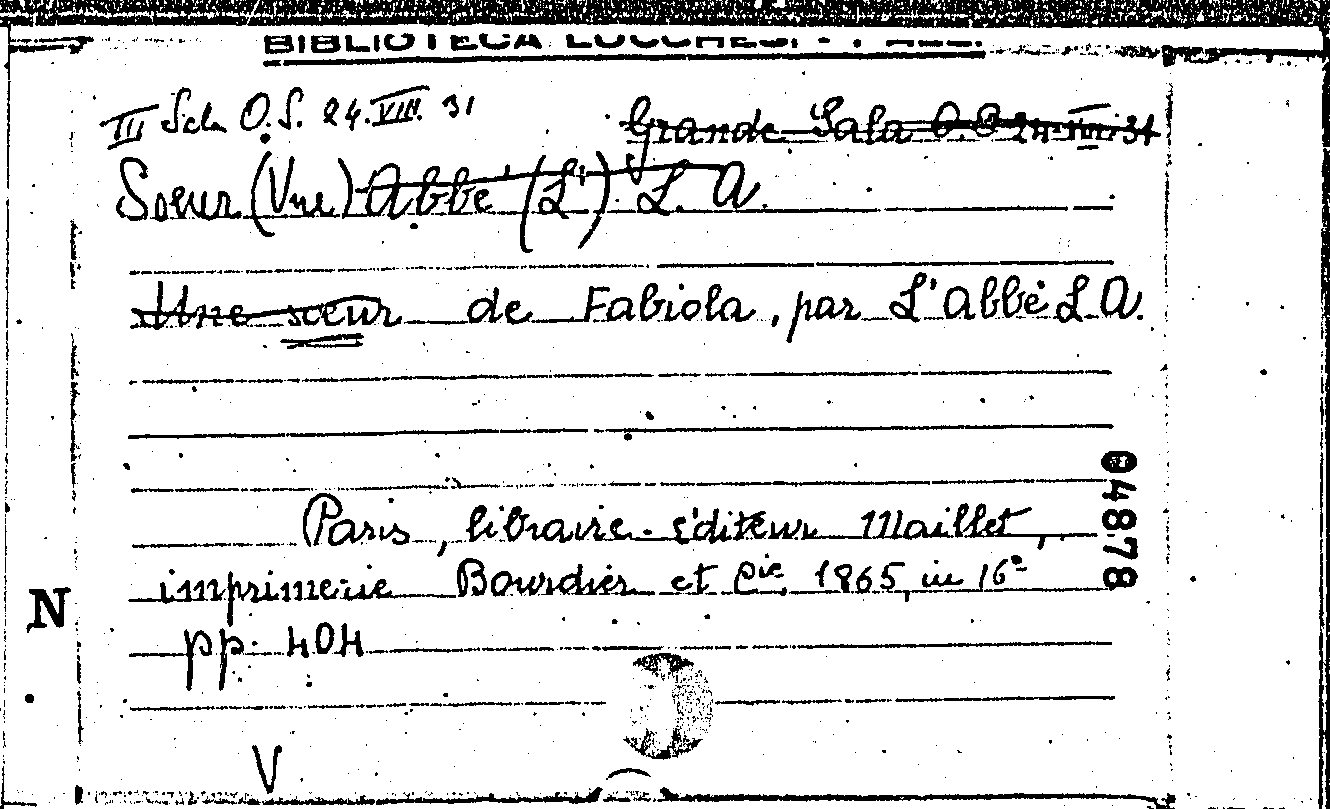 BIBLIOTECA LUCCHESI - PALLI
III Sala O.S. 24. VIII. 31
Grande Sala O.S 24-VIII-31
Soeur (Une) Abbé (L') L. A.
Une soeur de Fabiola, par L'Abbé L A.
Paris, libraire-éditeur Maillet,
imprimerie Bourdier et Cie. 1865, in 16°
pp. 404
04878
N
V